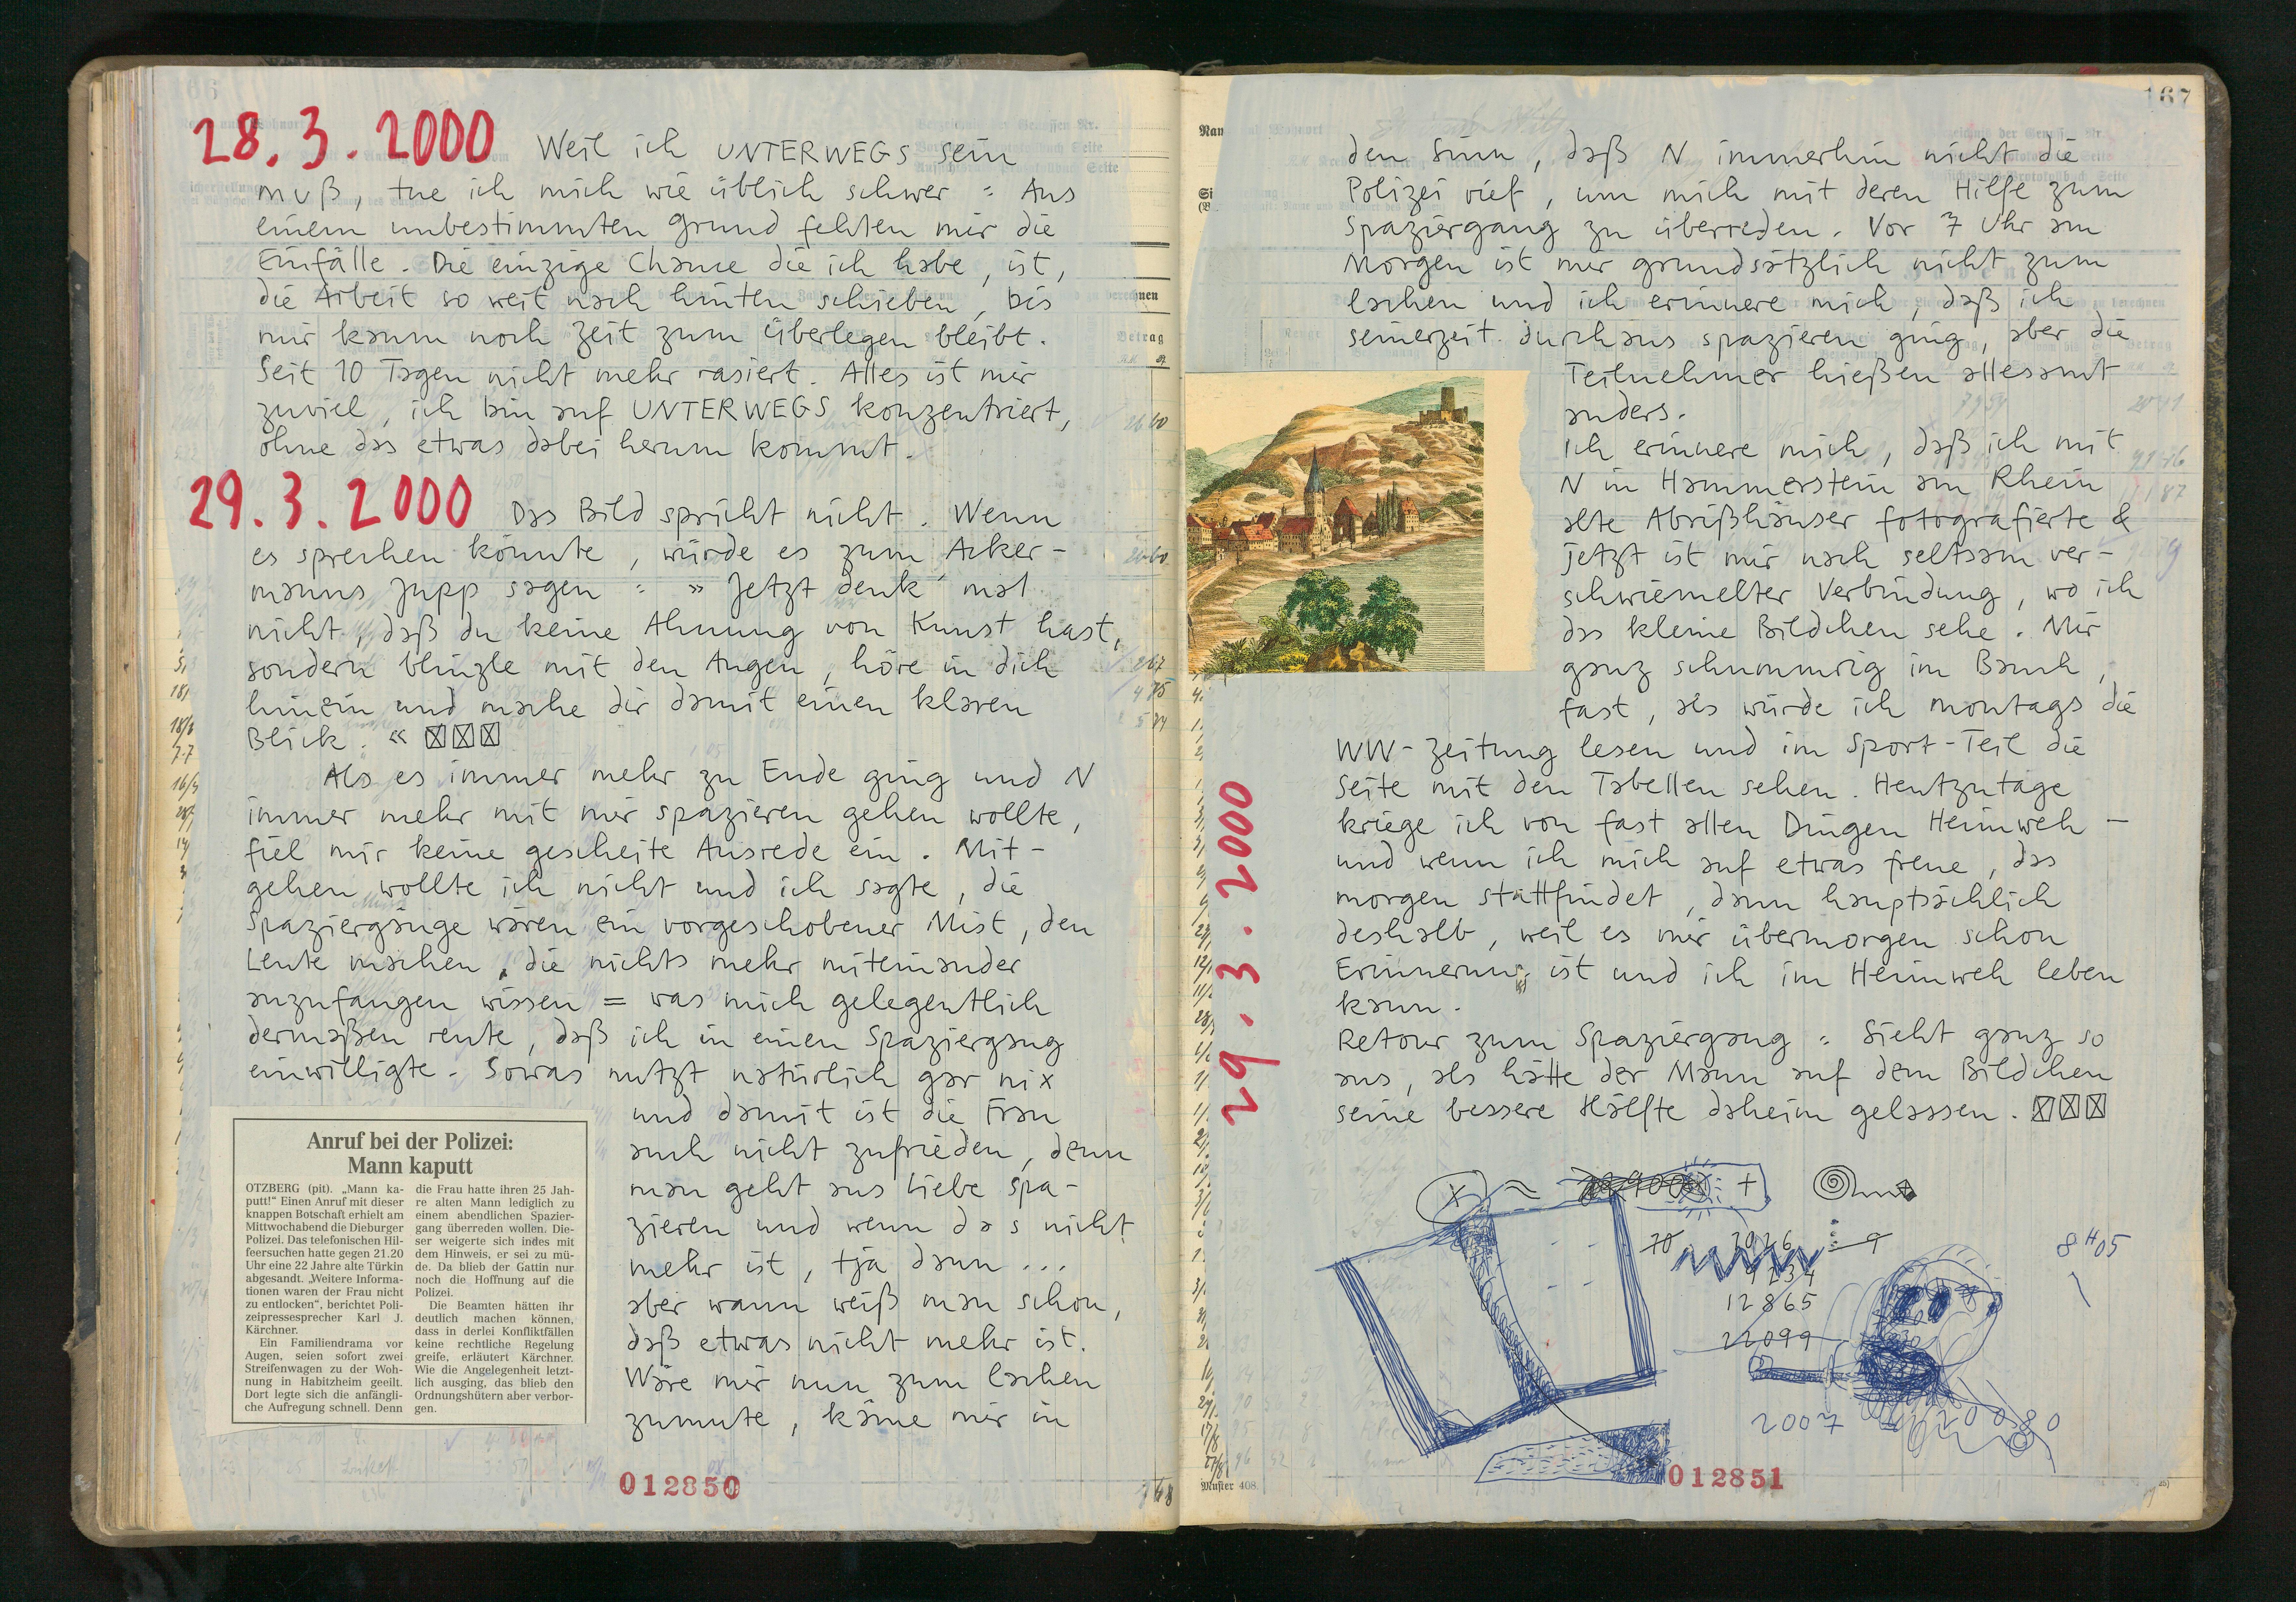 28.3.2000 Weil ich UNTERWEGS sein
muß, tue ich mich wie üblich schwer : Aus
einem unbestimmten Grund fehlen mir die
Einfälle. Die einzige Chance die ich habe, ist,
die Arbeit so weit nach hinten schieben, bis
mir kaum noch Zeit zum überlegen bleibt.
Seit 10 Tagen nicht mehr rasiert. Alles ist mir
zuviel, ich bin auf UNTERWEGS konzentriert,
ohne das etwas dabei herum kommt.
29.3.2000 Das Bild spricht nicht. Wenn
es sprechen könnte, würde es zum Acker-
manns Jupp sagen : » Jetzt denk mal
nicht, daß du keine Ahnung von Kunst hast,
sondern blinzle mit den Augen, höre in dich
hinein und mache dir damit einen klaren
Blick. «
Als es immer mehr zu Ende ging und N
immer mehr mit mir spazieren gehen wollte,
fiel mir keine gescheite Ausrede ein. Mit-
gehen wollte ich nicht und ich sagte, die
Spaziergänge wären ein vorgeschobener Mist, den
Leute machen, die nichts mehr miteinander
anzufangen wissen = was mich gelegentlich
dermaßen reute, daß ich in einen Spaziergang
einwilligte. Sowas nutzt natürlich gar nix
und damit ist die Frau
auch nicht zufrieden, denn
man geht aus Liebe spa-
zieren und wenn das nicht
mehr ist, tja dann ...
aber wann weiß man schon,
daß etwas nicht mehr ist.
Wäre mir nun zum lachen
zumute, käme mir in
Anruf bei der Polizei:
Mann kaputt
OTZBERG (pit). „Mann ka-
putt!“ Einen Anruf mit dieser
knappen Botschaft erhielt am
Mittwochabend die Dieburger
Polizei. Das telefonischen Hil-
feersuchen hatte gegen 21.20
Uhr eine 22 Jahre alte Türkin
abgesandt. „Weitere Informa-
tionen waren der Frau nicht
zu entlocken“, berichtet Poli-
zeipressesprecher Karl J.
Kärchner.
Ein Familiendrama vor
Augen, seien sofort zwei
Streifenwagen zu der Woh-
nung in Habitzheim geeilt.
Dort legte sich die anfängli-
che Aufregung schnell. Denn
die Frau hatte ihren 25 Jah-
re alten Mann lediglich zu
einem abendlichen Spazier-
gang überreden wollen. Die-
ser weigerte sich indes mit
dem Hinweis, er sei zu mü-
de. Da blieb der Gattin nur
noch die Hoffnung auf die
Polizei.
Die Beamten hätten ihr
deutlich machen können,
dass in derlei Konfliktfällen
keine rechtliche Regelung
greife, erläutert Kärchner.
Wie die Angelegenheit letzt-
lich ausging, das blieb den
Ordnungshütern aber verbor-
gen.
012850
167
den Sinn, daß N immerhin nicht die
Polizei rief, um mich mit deren Hilfe zum
Spaziergang zu überreden. Vor 7 Uhr am
Morgen ist mir grundsätzlich nicht zum
lachen und ich erinnere mich, daß ich
seinerzeit durchaus spazieren ging, aber die
Teilnehmer hießen allesamt
anders.
Ich erinnere mich, daß ich mit
N in Hammerstein am Rhein
alte Abrißhäuser fotografierte &
jetzt ist mir nach seltsam ver-
schwiemelter Verbindung, wo ich
das kleine Bildchen sehe. Mir
ganz schummrig im Bauch,
fast, als würde ich montags die
WW-Zeitung lesen und im Sport-Teil die
Seite mit den Tabellen sehen. Heutzutage
kriege ich von fast allen Dingen Heimweh –
und wenn ich mich auf etwas freue, das
morgen stattfindet, dann hauptsächlich
deshalb, weil es mir übermorgen schon
Erinnerung ist und ich im Heimweh leben
kann.
Retour zum Spaziergang : Sieht ganz so
aus, als hätte der Mann auf dem Bildchen
seine bessere Hälfte daheim gelassen.
29.3.2000
9234
12865
22099
8H05
2007
Muster 408.
012851